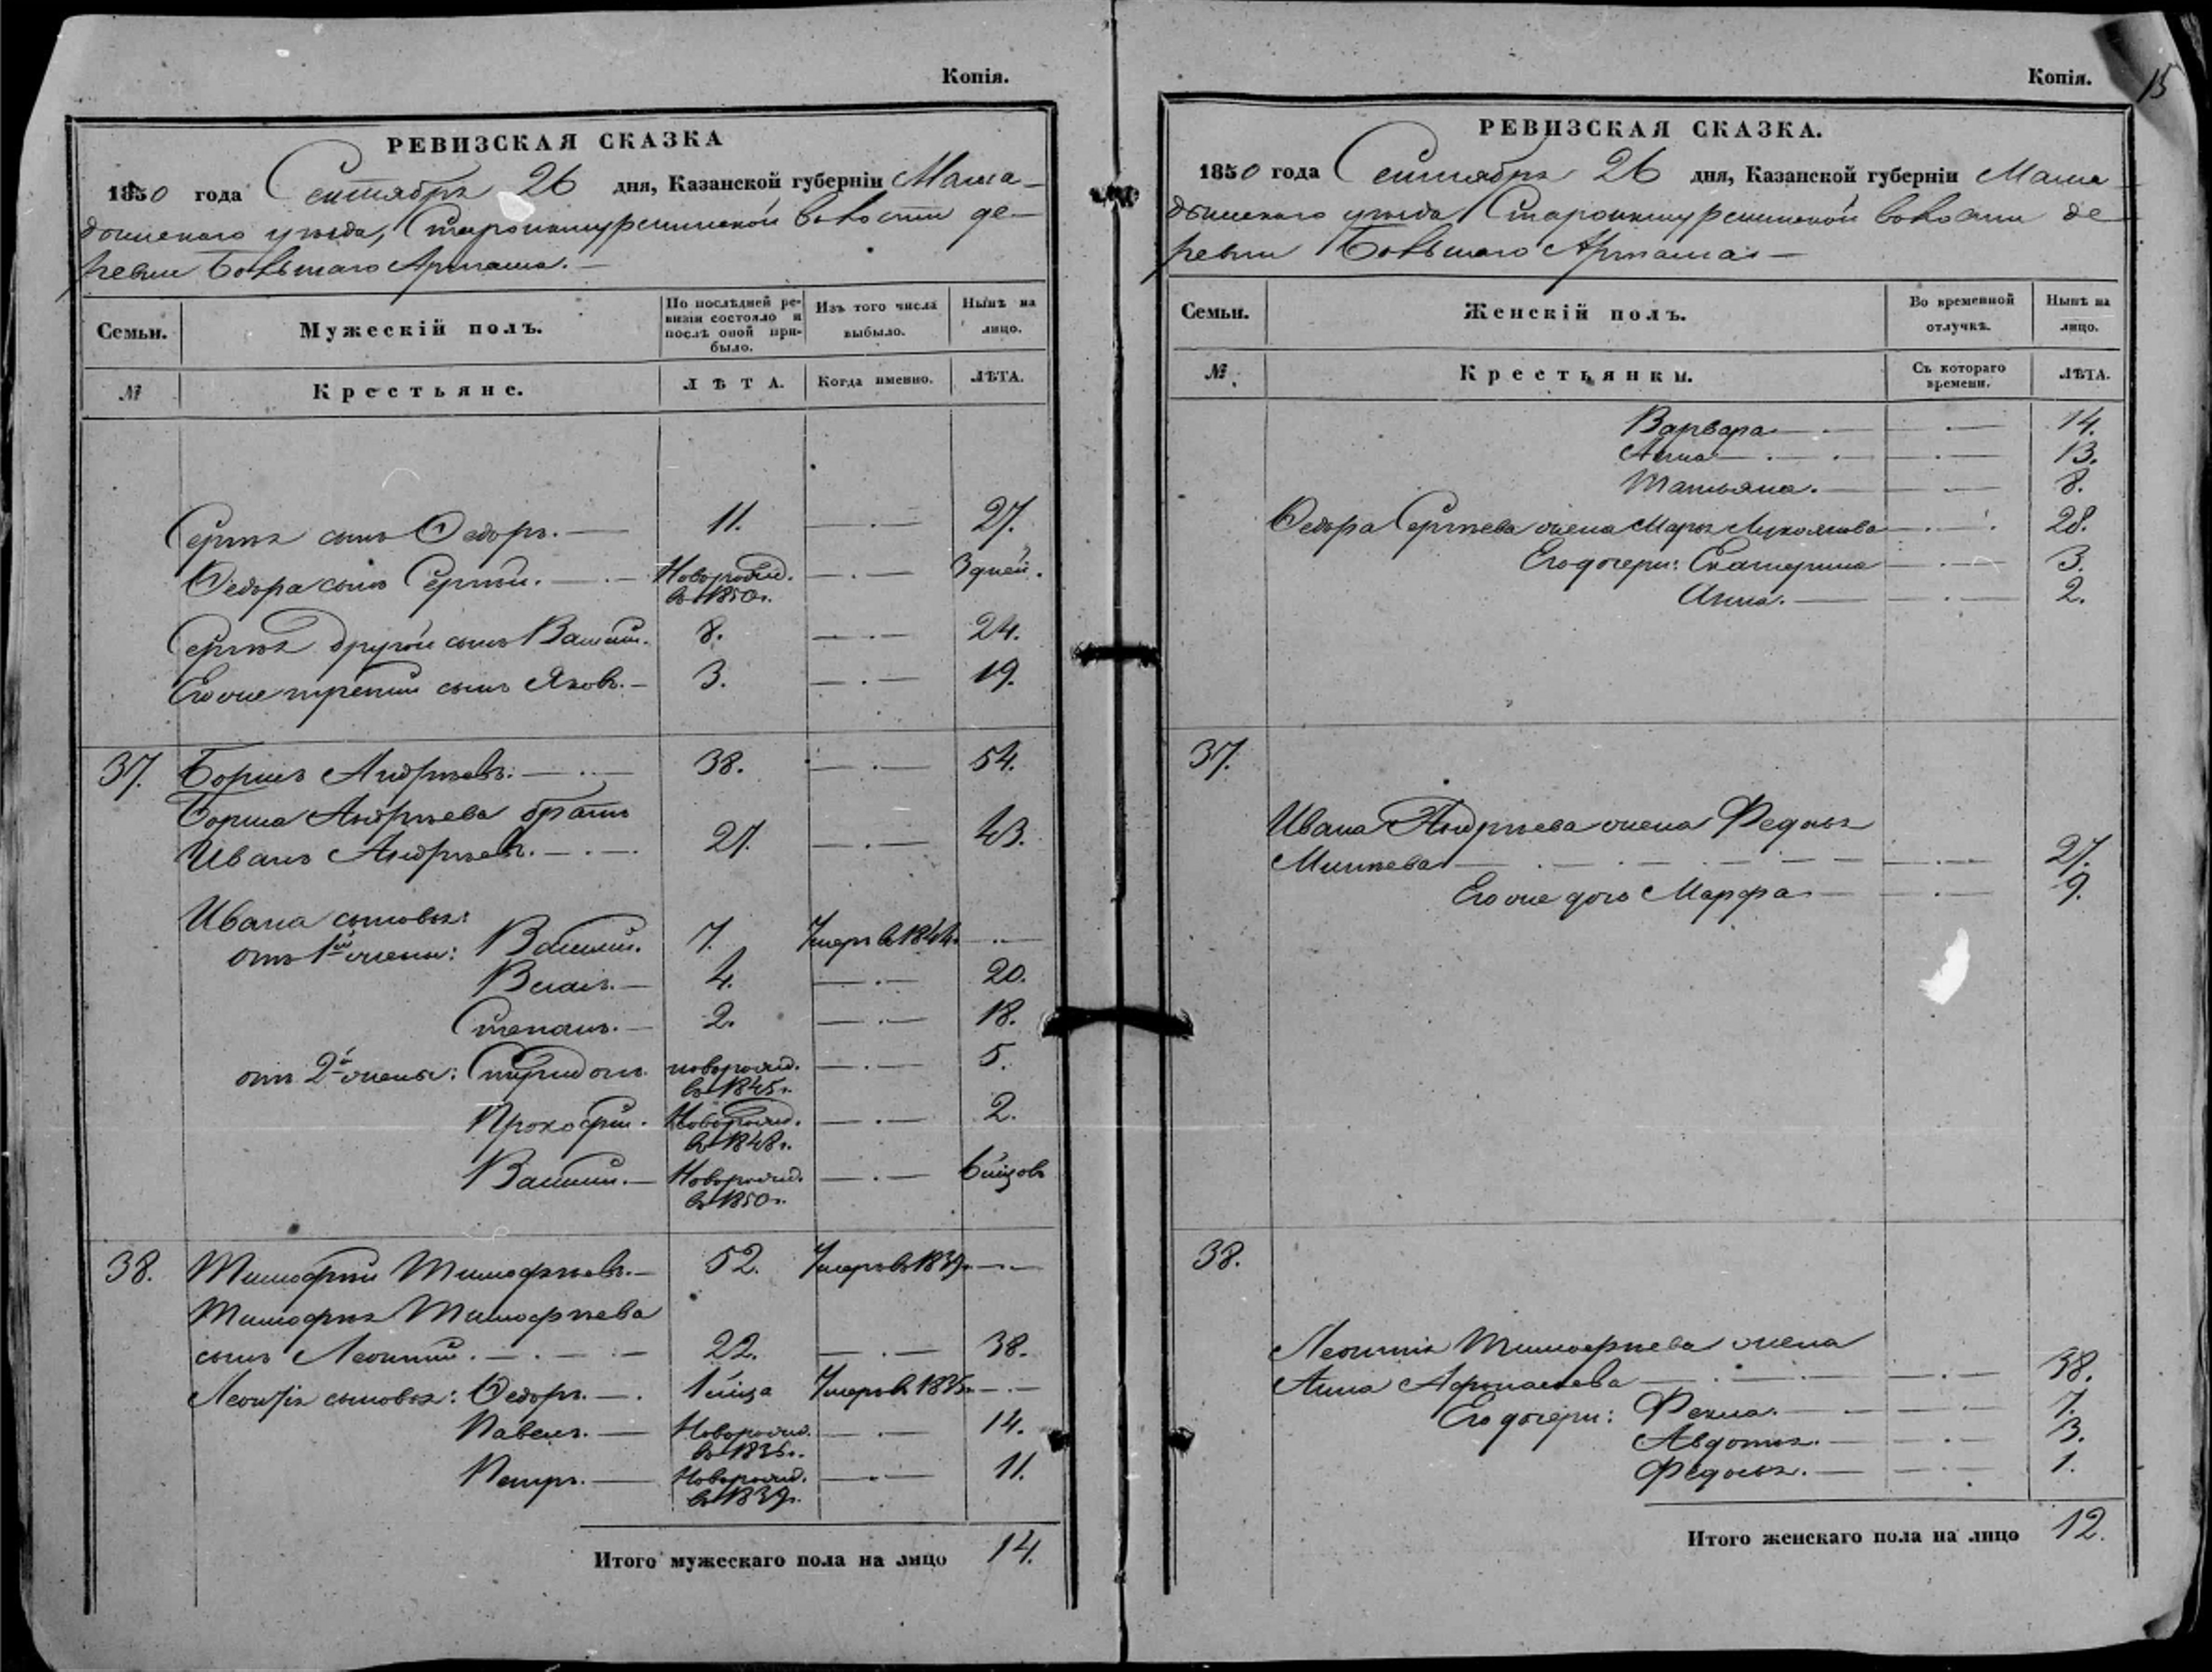 Копія.
РЕВИЗСКАЯ СКАЗКА
1850 года Сентября 26 дня, Казанской губерніи Мама-
дышскаго уѣзда, волости де-
ревни Большаго Арташа. —
Семьи.
Мужескій полъ.
По послѣдней ре-
визіи состояло и
послѣ оной при-
было.
Изъ того числа
выбыло.
Нынѣ на
лицо.
№
Крестьяне.
ЛѢТА.
Когда именно.
ЛѢТА.
Сергѣя сынъ Ѳедоръ. — 11. — . — 27.
Ѳедора сынъ Сергѣй. — . — Новорожд. — . — 3 дней.
въ 1850 г.
Сергѣя другой сынъ Василій. 8. — . — 24.
Его же третій сынъ Яковъ. — 3. — . — 19.
37. Борисъ Андрѣевъ. — . — 38. — . — 54.
Бориса Андрѣева братъ
Иванъ Андрѣевъ. — . — 27. — . — 43.
Ивана сыновья:
отъ 1й жены: Василій. 7. Умеръ въ 1844. — . —
Власъ. — 4. — . — 20.
Степанъ. — 2. — . — 18.
отъ 2й жены: Спиридонъ. новорожд. — . — 5.
въ 1845 г.
Прокофій. Новорожд. — . — 2.
въ 1848 г.
Василій. — Новорожд. — . — 6 мѣсцовъ
въ 1850 г.
38. Тимофей Тимофѣевъ. — 52. Умеръ въ 1839. — . —
Тимофея Тимофѣева
сынъ Леонтій. — . — . — 22. — . — 38.
Леонтія сыновья: Ѳедоръ. — . 1 мѣсца Умеръ в — . —
Павелъ. — Новорожд. — . — 14.
въ 1836 г.
Петръ. — Новорожд. — . — 11.
въ 1839 г.
Итого мужескаго пола на лицо 14.
Копія. 15
РЕВИЗСКАЯ СКАЗКА.
1850 года Сентября 26 дня, Казанской губерніи Мама-
дышскаго уѣзда, волости де-
ревни Большаго Арташа —
Семьи.
Женскій полъ.
Во временной
отлучкѣ.
Нынѣ на
лицо.
№
Крестьянки.
Съ котораго
времени.
ЛѢТА.
Варвара — . — — . — 14.
Анна — . — . — . — 13.
Татьяна. — — . — 8.
Ѳедора Сергѣева жена Марья Лукоянова — . — . 28.
Его дочери: Екатерина — . — 3.
Анна. — — . — 2.
37.
Ивана Андрѣева жена Федосья
Минѣева — . — . — . — — — . — 27.
Его же дочь Марфа — — . — 9.
38.
Леонтія Тимофѣева жена
Анна Афонасьева — . — . — — . — 38.
Его дочери: Фекла. — . — — . — 7.
Авдотья. — — . — 3.
Федосья. — — . — 1.
Итого женскаго пола на лицо 12.